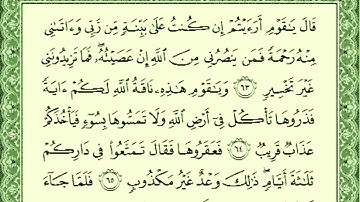 قَالَ يَـٰقَوْمِ أَرَءَيْتُمْ إِن كُنتُ عَلَىٰ بَيِّنَةٍ مِّن رَّبِّى وَءَاتَىٰنِى
مِنْهُ رَحْمَةً فَمَن يَنصُرُنِى مِنَ ٱللَّهِ إِنْ عَصَيْتُهُۥ ۖ فَمَا تَزِيدُونَنِى
غَيْرَ تَخْسِيرٍ ﴿٦٣﴾ وَيَـٰقَوْمِ هَـٰذِهِۦ نَاقَةُ ٱللَّهِ لَكُمْ ءَايَةً
فَذَرُوهَا تَأْكُلْ فِىٓ أَرْضِ ٱللَّهِ وَلَا تَمَسُّوهَا بِسُوٓءٍ فَيَأْخُذَكُمْ
عَذَابٌ قَرِيبٌ ﴿٦٤﴾ فَعَقَرُوهَا فَقَالَ تَمَتَّعُوا۟ فِى دَارِكُمْ
ثَلَـٰثَةَ أَيَّامٍ ۖ ذَٰلِكَ وَعْدٌ غَيْرُ مَكْذُوبٍ ﴿٦٥﴾ فَلَمَّا جَآءَ